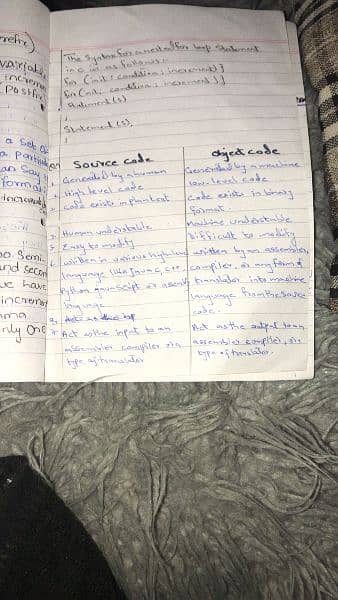 The Syntax for a nested for loop Statement
in c is as follows:
for (init; condition; increment) {
for (init; condition; increment) {
Statement(s)
;
}
Statement(s);
}
Source code
Object code
Generated by a human
High level code
code exists in plain text
Human understable
Easy to modify
written in various high level
language like Java c, c++,
Python Javascript or assembly
language
Act as the input to an
assembler compiler or a
type of translator
Generated by a machine
low-level code
code exists in binary
format.
Machine understable
Difficult to modify
written by an assembler,
compiler, or any form of
translator into machine
language from the source
code.
Act as the output to an
assembler compiler, or a
type of translator.
variable
increment
Postfix
a set of
a particular
can say
format
increment
no. Semi-
and second
we have
increment
only one